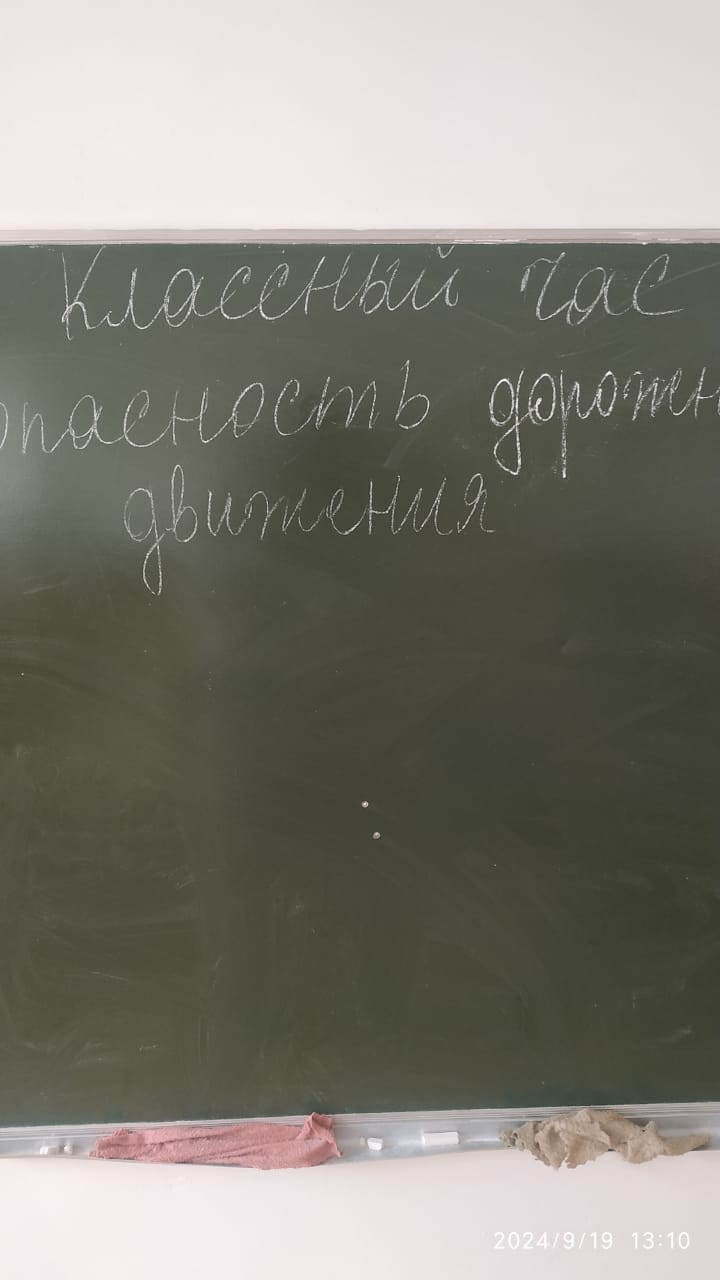 Классный час
опасность дорожн
движения
2024/9/19 13:10